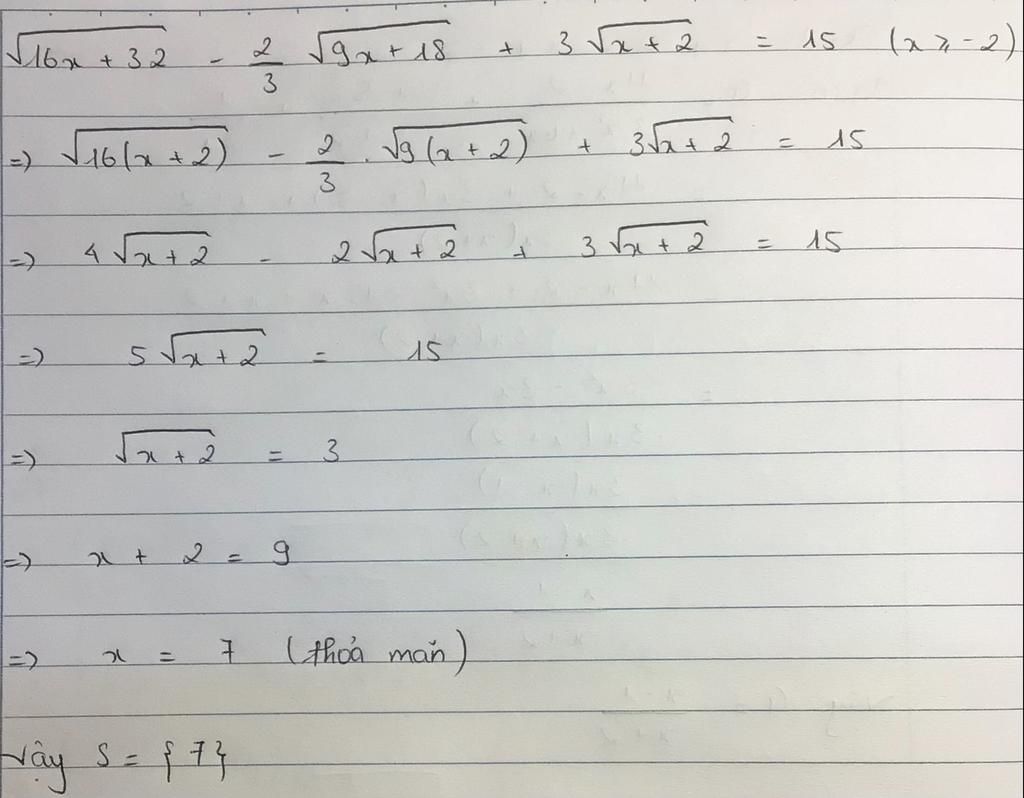 √(16x + 32) - 2/3 √(9x + 18) + 3√(x + 2) = 15 (x ⩾ -2)
=) √(16(x + 2)) - 2/3 . √(9(x + 2)) + 3√(x + 2) = 15
=) 4√(x + 2) - 2√(x + 2) + 3√(x + 2) = 15
=) 5√(x + 2) = 15
=) √(x + 2) = 3
=) x + 2 = 9
=) x = 7 (thoả mãn)
Vậy S = {7}